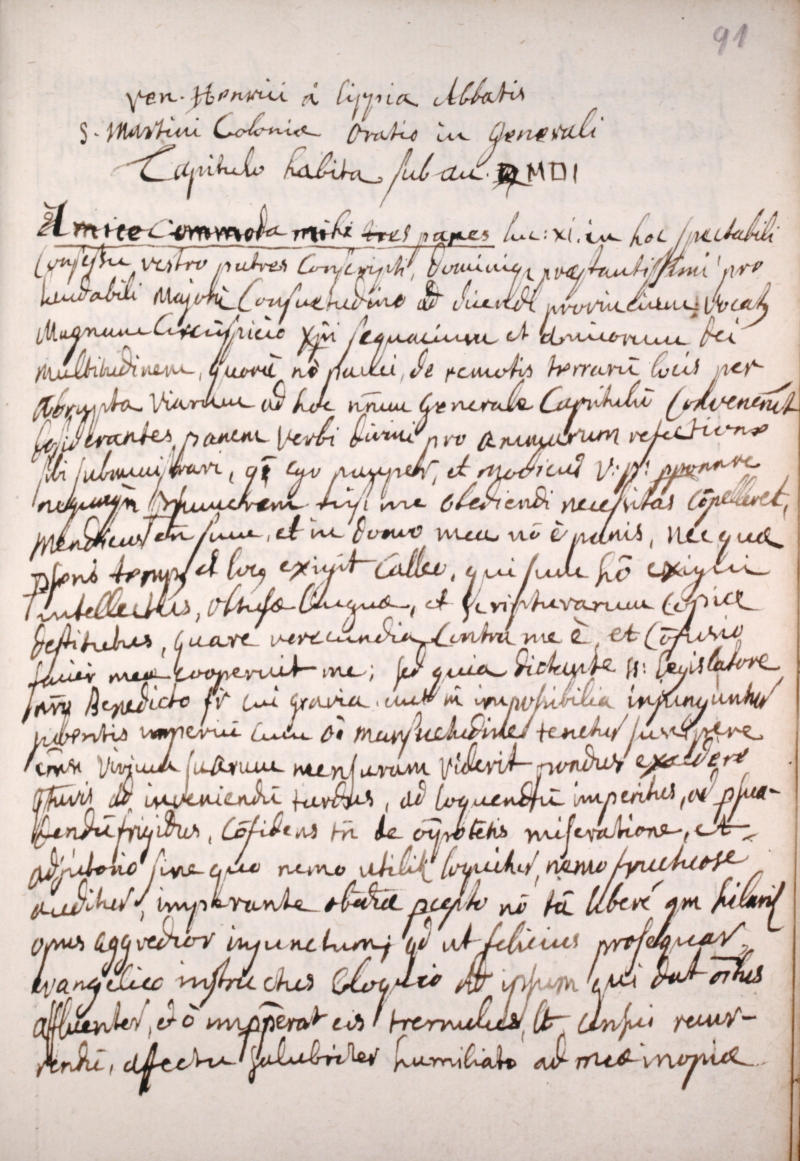 91
Ven. Henrici à Lippia Abbatis
S. Martini Coloniæ Oratio in Generali
Capitulo habita sub an. MDI
Amice Commoda mihi tres panes luc: xi. in hoc spectabili
Consessu vestro patres Conscripti, dominiq; præstantissimi pro
laudabili Majorū Consuetudine ad dicendi provinciam vocatg
Magnam Circūspicio xp̄i sequacium et domini dei
multitudinem, quorū nō pauci, de remotis terrarū locis per
abrupta viarum ad hoc nr̄um Generale Capitulū Convenerūt
desiderantes panem verbi divini pro animarum refectione
sibi subministrari, qē ego pauper, et modicus V: P: pponere
nequaqm̄ psumerem nisi me obediendi necessitas Cōpelleret,
Mendicus em̄ sum, et in domo mea nō ē panis, nec quæ
psens tempg et locg exigit Calleo, qui sum hō exigui
intellectus, obtusæ linguæ, et scripturarum Copiæ
destitutus, quare verecundia Contra me ē, et Cōfusio
faciei meæ cooperuit me; sed quia dictante SS: legislatore
nr̄o Benedicto fr̄ cui gravia aut impossibilia injunguntur
jubentis imperiū cum oī mansuetudine tenetur suscipere
virium suarum mensuram viderit pondus excedere
qmvis ad inveniendū tardus, ad loquendū imperitus, ad psua-
dendū frigidus, Cōfidens tn̄ de oīpotētis miseratione, et
adjutorio sine quo nemo utilit loquitur, nemo fructuose
auditur, imperante obediæ pcepto nō tā liberē qm hilarit
opus aggredior injunctum; qd ut felicius prosequar
evangelico instructus Eloquio ad ipsum qui dat oībus
affluenter, et ō impperat eis tremulus, et recur-
rendū, affectu salubriter humiliato ad meæ inopiæ